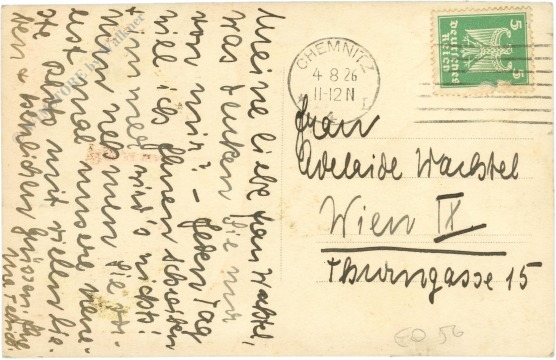 Meine liebe Frau Wachtel,
was denken Sie nur
von mir? – Jeden Tag
will ich Ihnen schreiben
immer wird's nichts!
nehmen Sie
erst mal unsere neue-
mit vielen lie-
ben u. herzlichen Grüssen,
CHEMNITZ
4 8 26
11-12 N
5
5
Deutsches
Reich
Frau
Adelaide Wachtel
Wien IX
Thurngasse 15